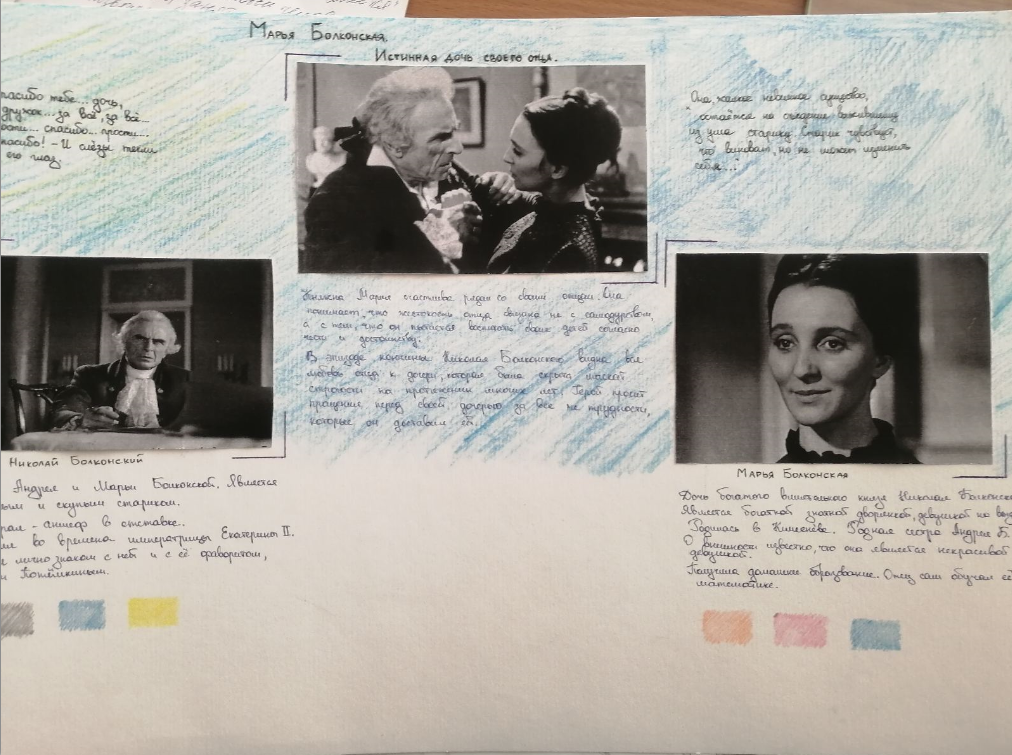 Марья Болконская.
Истинная дочь своего отца.
пасибо тебе... дочь,
дружок... за всё, за всё...
прости... спасибо... прости...
пасибо! - И слёзы текли
его глаз.
"Она, жалкое невинное существо,
остаётся на съедение выжившему
из ума старику. Старик чувствует,
что виноват, но не может изменить
себя..."
Княжна Марья счастлива рядом со своим отцом. Она
понимает, что жестокость отца связана не с самодурством,
а с тем, что он пытается воспитать своих детей согласно
чести и достоинству.
В эпизоде кончины Николая Болконского видна вся
любовь отца к дочери, которая была скрыта маской
строгости на протяжении многих лет. Герой просит
прощение перед своей дочерью за все те трудности,
которые он доставил ей.
Николай Болконский
Андрея и Марьи Болконской. Является
ым и скупым стариком.
рал-аншеф в отставке.
во времена императрицы Екатерины II.
лично знаком с ней и с её фаворитом,
Потёмкиным.
Марья Болконская
Дочь богатого влиятельного князя Николая Болконско
Является богатой знатной дворянкой, девушкой на
Родилась в Родная сестра Андрея Б.
О внешности известно, что она является некрасивой
девушкой.
Получила домашнее образование. Отец сам обучал её
математике.